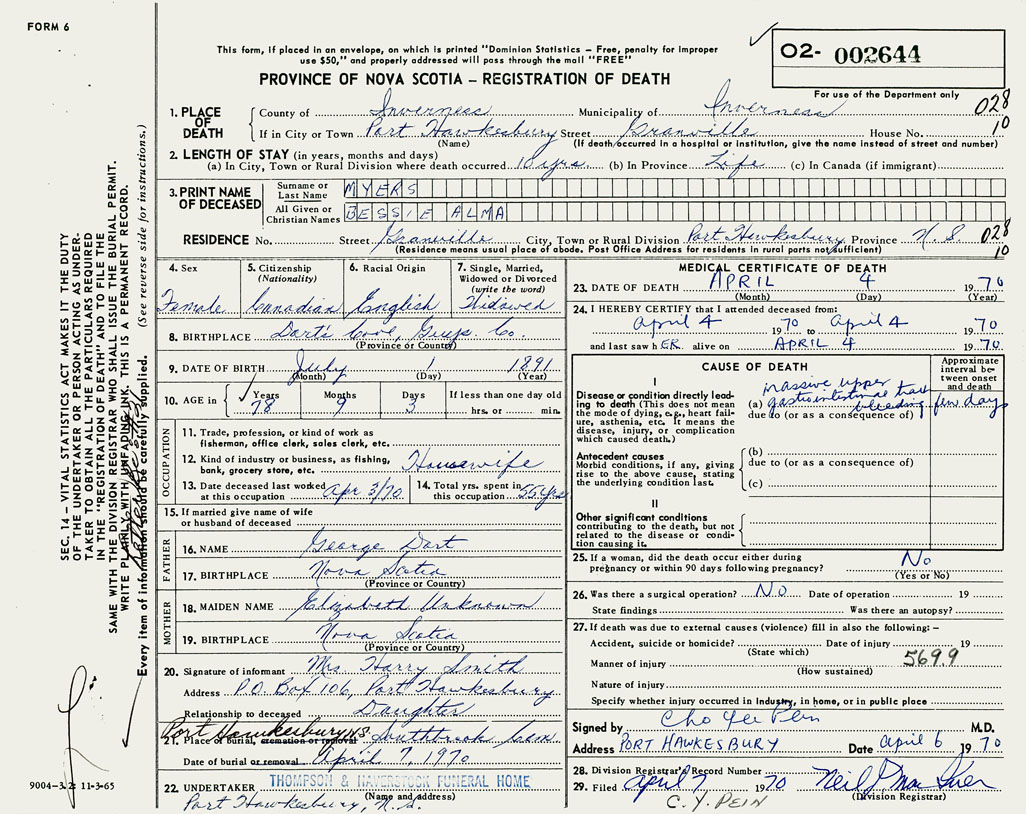 FORM 6
This form, if placed in an envelope, on which is printed "Dominion Statistics – Free, penalty for improper
use $50," and properly addressed will pass through the mail "FREE"
PROVINCE OF NOVA SCOTIA – REGISTRATION OF DEATH
02- 002644
For use of the Department only
1. PLACE OF DEATH
County of Inverness Municipality of Inverness 028
If in City or Town Port Hawkesbury Street Granville House No. 10
(Name) (If death occurred in a hospital or institution, give the name instead of street and number)
2. LENGTH OF STAY (in years, months and days)
(a) In City, Town or Rural Division where death occurred 10 yrs (b) In Province Life (c) In Canada (if immigrant)
3. PRINT NAME OF DECEASED
Surname or Last Name MYERS
All Given or Christian Names BESSIE ALMA
RESIDENCE No. Street Granville City, Town or Rural Division Port Hawkesbury Province N.S. 028
(Residence means usual place of abode. Post Office Address for residents in rural parts not sufficient) 10
4. Sex
Female
5. Citizenship
(Nationality)
Canadian
6. Racial Origin
English
7. Single, Married,
Widowed or Divorced
(write the word)
Widowed
8. BIRTHPLACE Dart's Cove, Guys. Co.
(Province or Country)
9. DATE OF BIRTH July 1 1891
(Month) (Day) (Year)
10. AGE in Years Months Days If less than one day old
78 9 3 hrs. or min.
OCCUPATION
11. Trade, profession, or kind of work as
fisherman, office clerk, sales clerk, etc.
12. Kind of industry or business, as fishing,
bank, grocery store, etc. Housewife
13. Date deceased last worked
at this occupation Apr 3/70
14. Total yrs. spent in
this occupation 55 yrs
15. If married give name of wife
or husband of deceased
FATHER
16. NAME George Dart
17. BIRTHPLACE Nova Scotia
(Province or Country)
MOTHER
18. MAIDEN NAME Elizabeth Unknown
19. BIRTHPLACE Nova Scotia
(Province or Country)
20. Signature of informant Mrs. Harry Smith
Address P.O. Box 106, Port Hawkesbury
Relationship to deceased Daughter
Port Hawkesbury N.S.
21. Place of burial, cremation or removal Cem
Date of burial or removal April 7, 1970
22. UNDERTAKER THOMPSON & HAVERSTOCK FUNERAL HOME
(Name and address)
Port Hawkesbury, N.S.
MEDICAL CERTIFICATE OF DEATH
23. DATE OF DEATH APRIL 4 1970
(Month) (Day) (Year)
24. I HEREBY CERTIFY that I attended deceased from:
April 4 1970 to April 4 1970
and last saw hER alive on APRIL 4 1970
CAUSE OF DEATH
Approximate
interval be-
tween onset
and death
I
Disease or condition directly lead-
ing to death (This does not mean
the mode of dying, e.g., heart fail-
ure, asthenia, etc. It means the
disease, injury, or complication
which caused death.)
massive upper
(a) gastrointestinal tract
bleeding
few days
due to (or as a consequence of)
Antecedent causes
Morbid conditions, if any, giving
rise to the above cause, stating
the underlying condition last.
(b)
due to (or as a consequence of)
(c)
II
Other significant conditions
contributing to the death, but not
related to the disease or condi-
tion causing it.
25. If a woman, did the death occur either during
pregnancy or within 90 days following pregnancy? No
(Yes or No)
26. Was there a surgical operation? No Date of operation 19
State findings Was there an autopsy?
27. If death was due to external causes (violence) fill in also the following: –
Accident, suicide or homicide? Date of injury 19
(State which)
Manner of injury 569.9
(How sustained)
Nature of injury
Specify whether injury occurred in Industry, in home, or in public place
Signed by Cho Yee Pein M.D.
Address PORT HAWKESBURY Date April 6 1970
28. Division Registrar's Record Number
29. Filed April 7 1970
(Division Registrar)
C. Y. PEIN
SEC. 14 – VITAL STATISTICS ACT MAKES IT THE DUTY
OF THE UNDERTAKER OR PERSON ACTING AS UNDER-
TAKER TO OBTAIN ALL THE PARTICULARS REQUIRED
IN THE "REGISTRATION OF DEATH" AND TO FILE THE
SAME WITH THE DIVISION REGISTRAR WHO SHALL ISSUE THE BURIAL PERMIT.
WRITE PLAINLY WITH UNFADING INK. THIS IS A PERMANENT RECORD.
Every item of information should be carefully supplied. (See reverse side for instructions.)
9004-3.2: 11-3-65